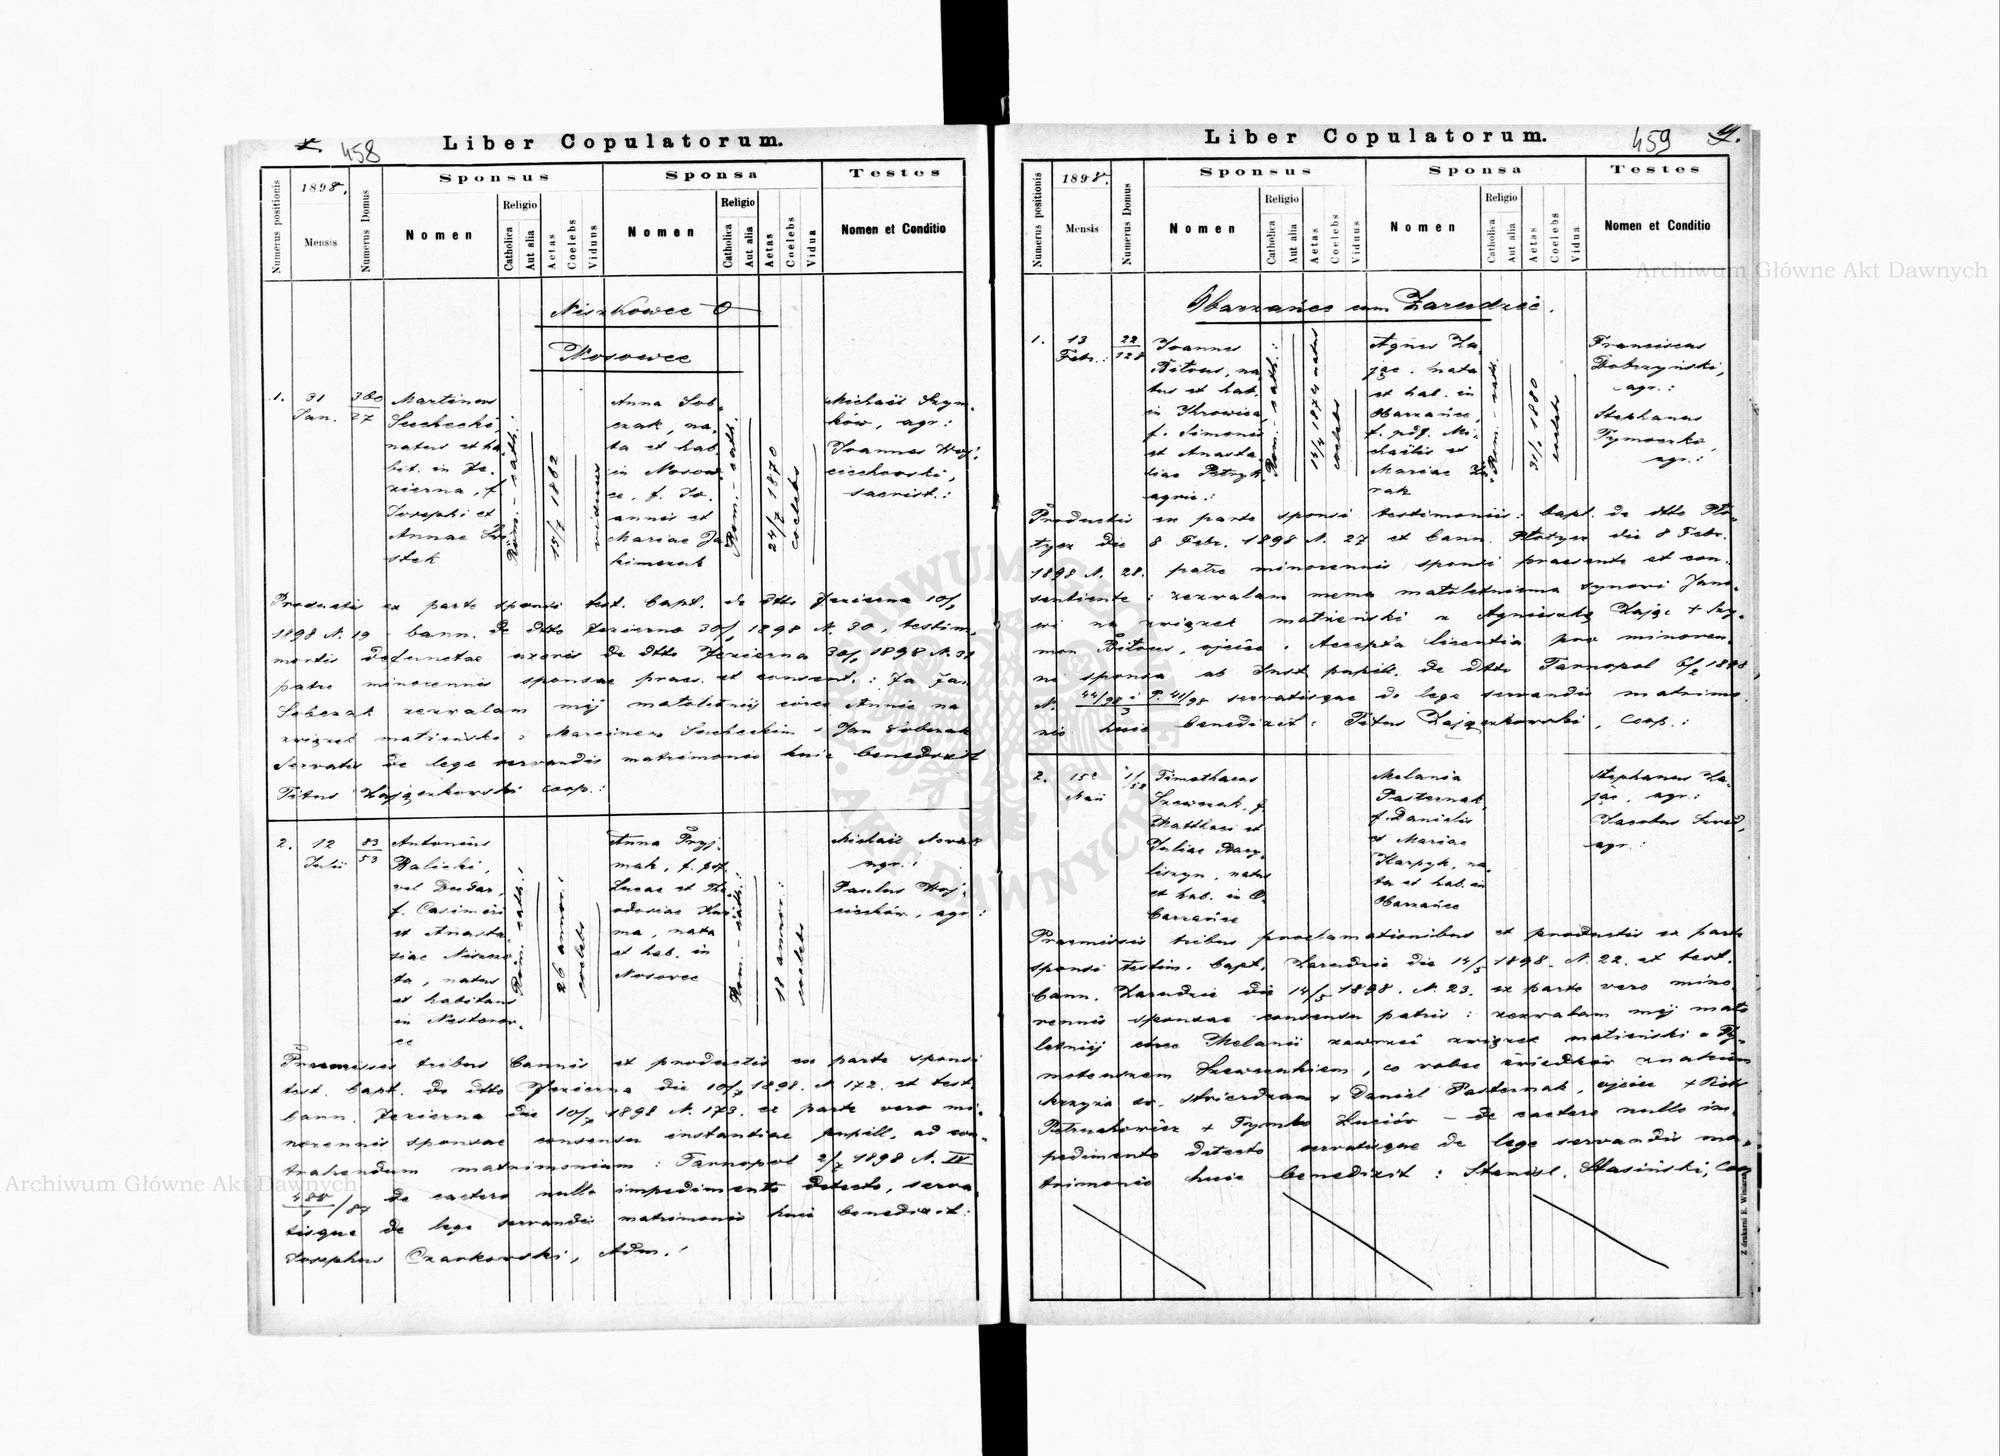 458
Liber Copulatorum.
Numerus positionis
1898.
Mensis
Numerus Domus
Sponsus
Nomen
Religio
Catholica
Aut alia
Aetas
Coelebs
Viduus
Sponsa
Nomen
Religio
Catholica
Aut alia
Aetas
Coelebs
Vidua
Testes
Nomen et Conditio
Niszkowce
Nosowce
1.
31
Jan.
27
Martinus
Suchecki,
natus et ha-
bit. in Je-
zierna, f.
Josephi et
Annae
Rom. - cath.:
15/7 1862
viduus
Anna Sob-
czak, na-
ta et hab.
in Nosow-
ce, f. Jo-
annis et
Mariae Ja-
kimczuk
Rom. - cath.:
24/7 1870
coelebs
Michael Szym-
ków, agr.:
Joannes Woj-
ciechowski,
sacrist.:
Productis ex parte sponsi test. bapt. de dtto Jezierna
1898 N. 19 - bann. de dtto Jezierna 1898 N. 30, testim.
mortis defunctae uxoris de dtto Jezierna 1898 N. 31
patre minorennis sponsae praes. et consent.: Ja Jan
Sobczak zezwalam méj małoletniéj córce Annie na
związek małżeński z Marcinem Sucheckim + Jan Sobczak
Servatis de lege servandis matrimonio huic benedixit
Titus Zajączkowski coop.:
2.
12
Julii
83
53
Antonius
Balicki,
vel Dudar,
f. Casimiri
et Anasta-
siae
ta, natus
et habitans
in Nestorow-
ce
Rom. - cath.:
26 annor.:
coelebs
Anna Pryj-
mak, f. pdf.
Lucae et The-
odosiae
ma, nata
et hab. in
Nosowce
Rom. - cath.:
18 annor.:
coelebs
Michael Nowak
agr.:
Paulus Woj-
ciechów, agr.:
Praemissis tribus bannis et productis ex parte sponsi
test. bapt. de dtto Jezierna die 10/7 1898. N. 172. et test.
bann. Jezierna die 10/7 1898 N. 173. ex parte vero mi-
norennis sponsae consensu instantiae pupill. ad con-
trahendum matrimonium: Tarnopol 2/7 1898 N. IV
de caetero nullo impedimento detecto, serva-
tisque de lege servandis matrimonio huic benedixit:
Josephus Czarkowski, Adm.:
Liber Copulatorum.
459
Numerus positionis
1898.
Mensis
Numerus Domus
Sponsus
Nomen
Religio
Catholica
Aut alia
Aetas
Coelebs
Viduus
Sponsa
Nomen
Religio
Catholica
Aut alia
Aetas
Coelebs
Vidua
Testes
Nomen et Conditio
Obarzańce cum Zarudzie.
1.
13
Febr.:
22
128
Joannes
Bitous, na-
tus et hab.
in Ihrowica
f. Simonis
et Anasta-
siae Petryk
agric.:
Rom. - cath.:
14/4 1874 natus
coelebs
Agnes Za-
jąc, nata
et hab. in
Obarzańce,
f. pdf. Mi-
chaëlis et
Mariae
Rom. - cath.:
31/1 1880
coelebs
Franciscus
Dobrzyński,
agr.:
Stephanus
Tymoczko,
agr.:
Productis ex parte sponsi testimoniis: bapt. de dtto Pło-
tycz die 8 Febr. 1898 N. 27 et bann. Płotycz die 8 Febr.
1898 N. 28. patre minorennis sponsi praesente et con-
sentiente: zezwalam memu małoletniemu synowi Jano-
wi na związek małżeński z Agnieszką Zając + Szy-
mon Bitous, ojciec. Accepta licentia pro minoren-
ni sponsa ab Inst. pupill. de dtto Tarnopol 6/2 1898
N. servatisque de lege servandis matrimo-
nio huic benedixit: Titus Zajączkowski, coop.:
2.
15
Maii
Timothaeus
Szewczuk, f.
Matthaei et
Juliae Bary-
liszyn, natus
et hab. in O-
barzańce
Melania
Pasternak,
f. Danielis
et Mariae
Karpyk, na-
ta et hab. in
Obarzańce
Stephanus Za-
jąc, agr.:
Jacobus
agr.:
Praemissis tribus proclamationibus et productis ex parte
sponsi testim. bapt. Zarudzie die 14/5 1898. N. 22. et test.
bann. Zarudzie die 14/5 1898. N. 23. ex parte vero mino-
rennis sponsae consensu patris: zezwalam méj mało-
letniéj córce Melanii zawrzeć związek małżeński z Ty-
moteuszem Szewczukiem, co wobec świadków znakiem
krzyża św. stwierdzam + Daniel Pasternak, ojciec +
+ Tymko - de caetero nullo im-
pedimento detecto servatisque de lege servandis ma-
trimonio huic benedixit: Stanisl. Stasiński, Coop
Z drukarni E. Winiarza
Archiwum Główne Akt Dawnych
Archiwum Główne Akt Dawnych
ARCHIWUM GŁÓWNE AKT DAWNYCH